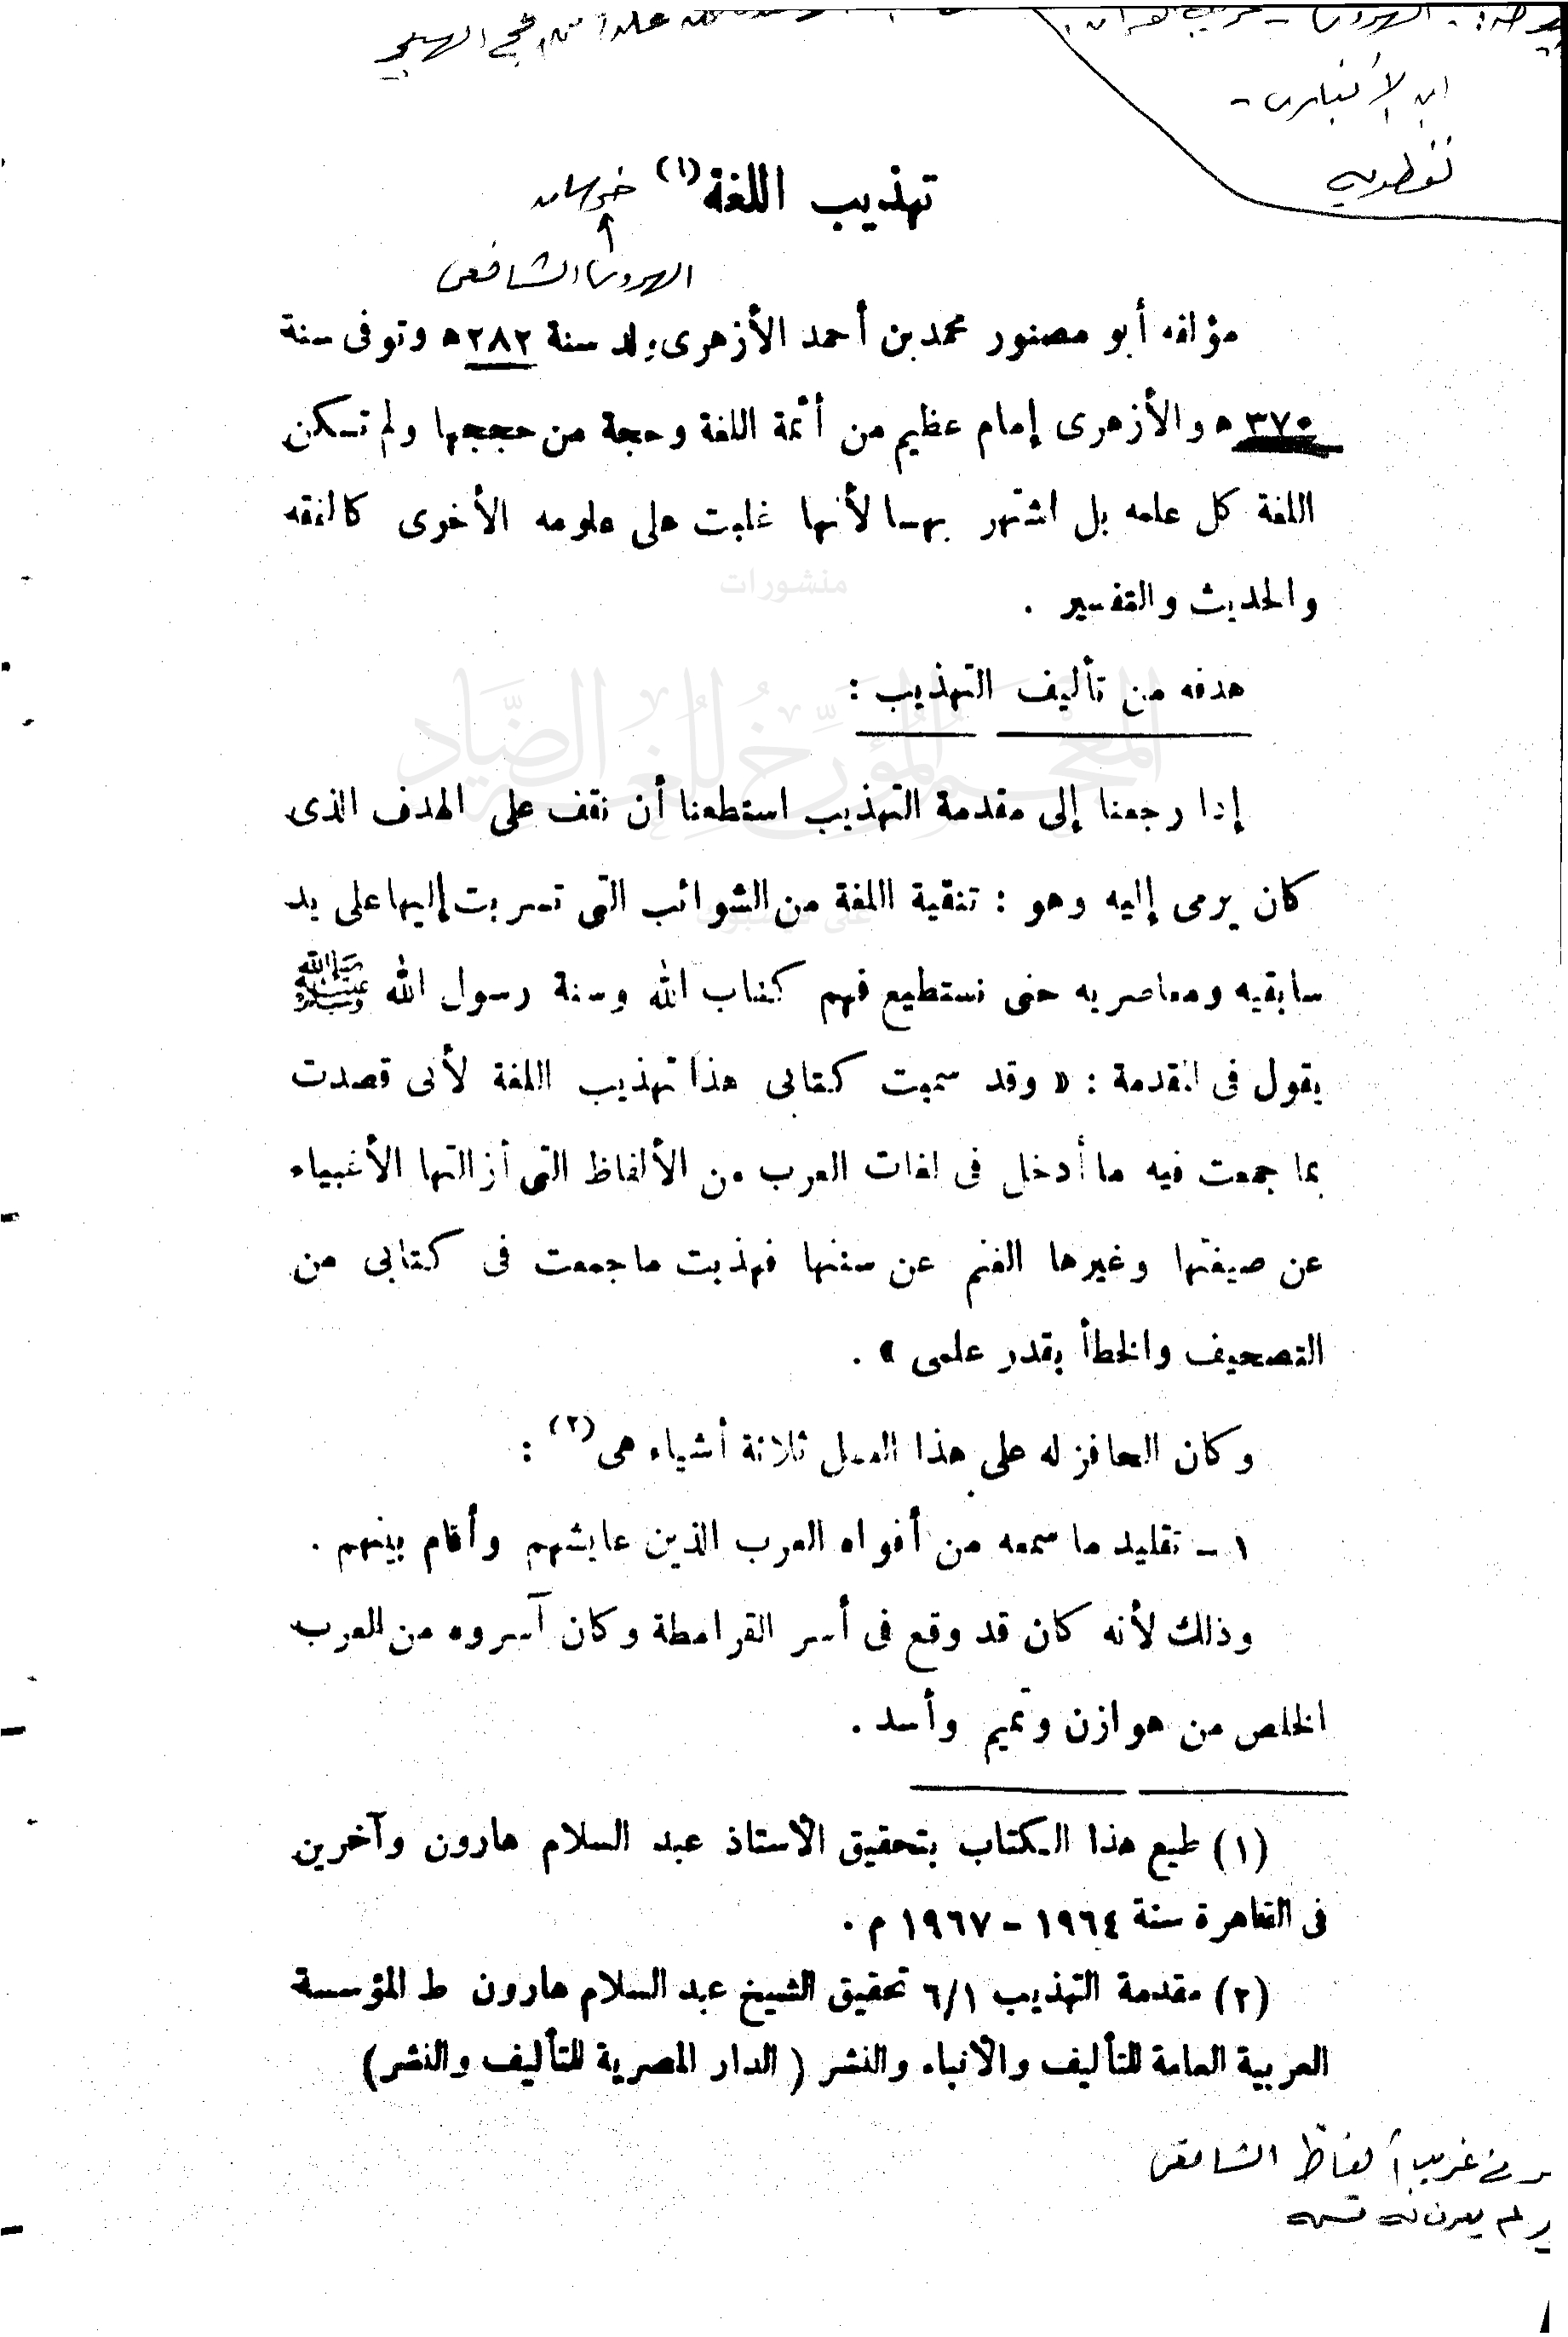 ابن الأنباري -
نفطويه
تهذيب اللغة (١) خراسان
الهروي الشافعي
مؤلفه أبو مصنور محمد بن أحمد الأزهرى ولد سنة ٢٨٢ ه وتوفى سنة
٣٧٠ ه والأزهرى إمام عظيم من أئمة اللغة وحجة من حججها ولم تكن
اللغة كل علمه بل اشتهر بها لأنها غلبت على علومه الأخرى كالفقه
والحديث والتفسير .
منشورات
هدفه من تأليف التهذيب :
المعجم المؤرخ للغة الضاد
إذا رجعنا إلى مقدمة التهذيب استطعنا أن نقف على الهدف الذى
كان يرمى إليه وهو : تنقية اللغة من الشوائب التى تسربت إليها على يد
سابقيه ومعاصريه حتى نستطيع فهم كتاب الله وسنة رسول الله ﷺ
يقول فى المقدمة : « وقد سميت كتابى هذا تهذيب اللغة لأنى قصدت
بما جمعت فيه ما أدخل فى لغات العرب من الألفاظ التى أزالتها الأغبياء
عن صيغتها وغيرها الغتم عن سننها فهذبت ما جمعت فى كتابى من
التصحيف والخطأ بقدر علمى » .
وكان الحافز له على هذا العمل ثلاثة أشياء هى (٢) :
١ - تقليد ما سمعه من أفواه العرب الذين عايشهم وأقام بينهم .
وذلك لأنه كان قد وقع فى أسر القرامطة وكان آسروه من العرب
الخلص من هوازن وتميم وأسد .
(١) طبع هذا الكتاب بتحقيق الأستاذ عبد السلام هارون وآخرين
فى القاهرة سنة ١٩٦٤ - ١٩٦٧ م .
(٢) مقدمة التهذيب ٦/١ تحقيق الشيخ عبد السلام هارون ط المؤسسة
العربية العامة للتأليف والأنباء والنشر ( الدار المصرية للتأليف والنشر )
غريب ألفاظ الشافعي